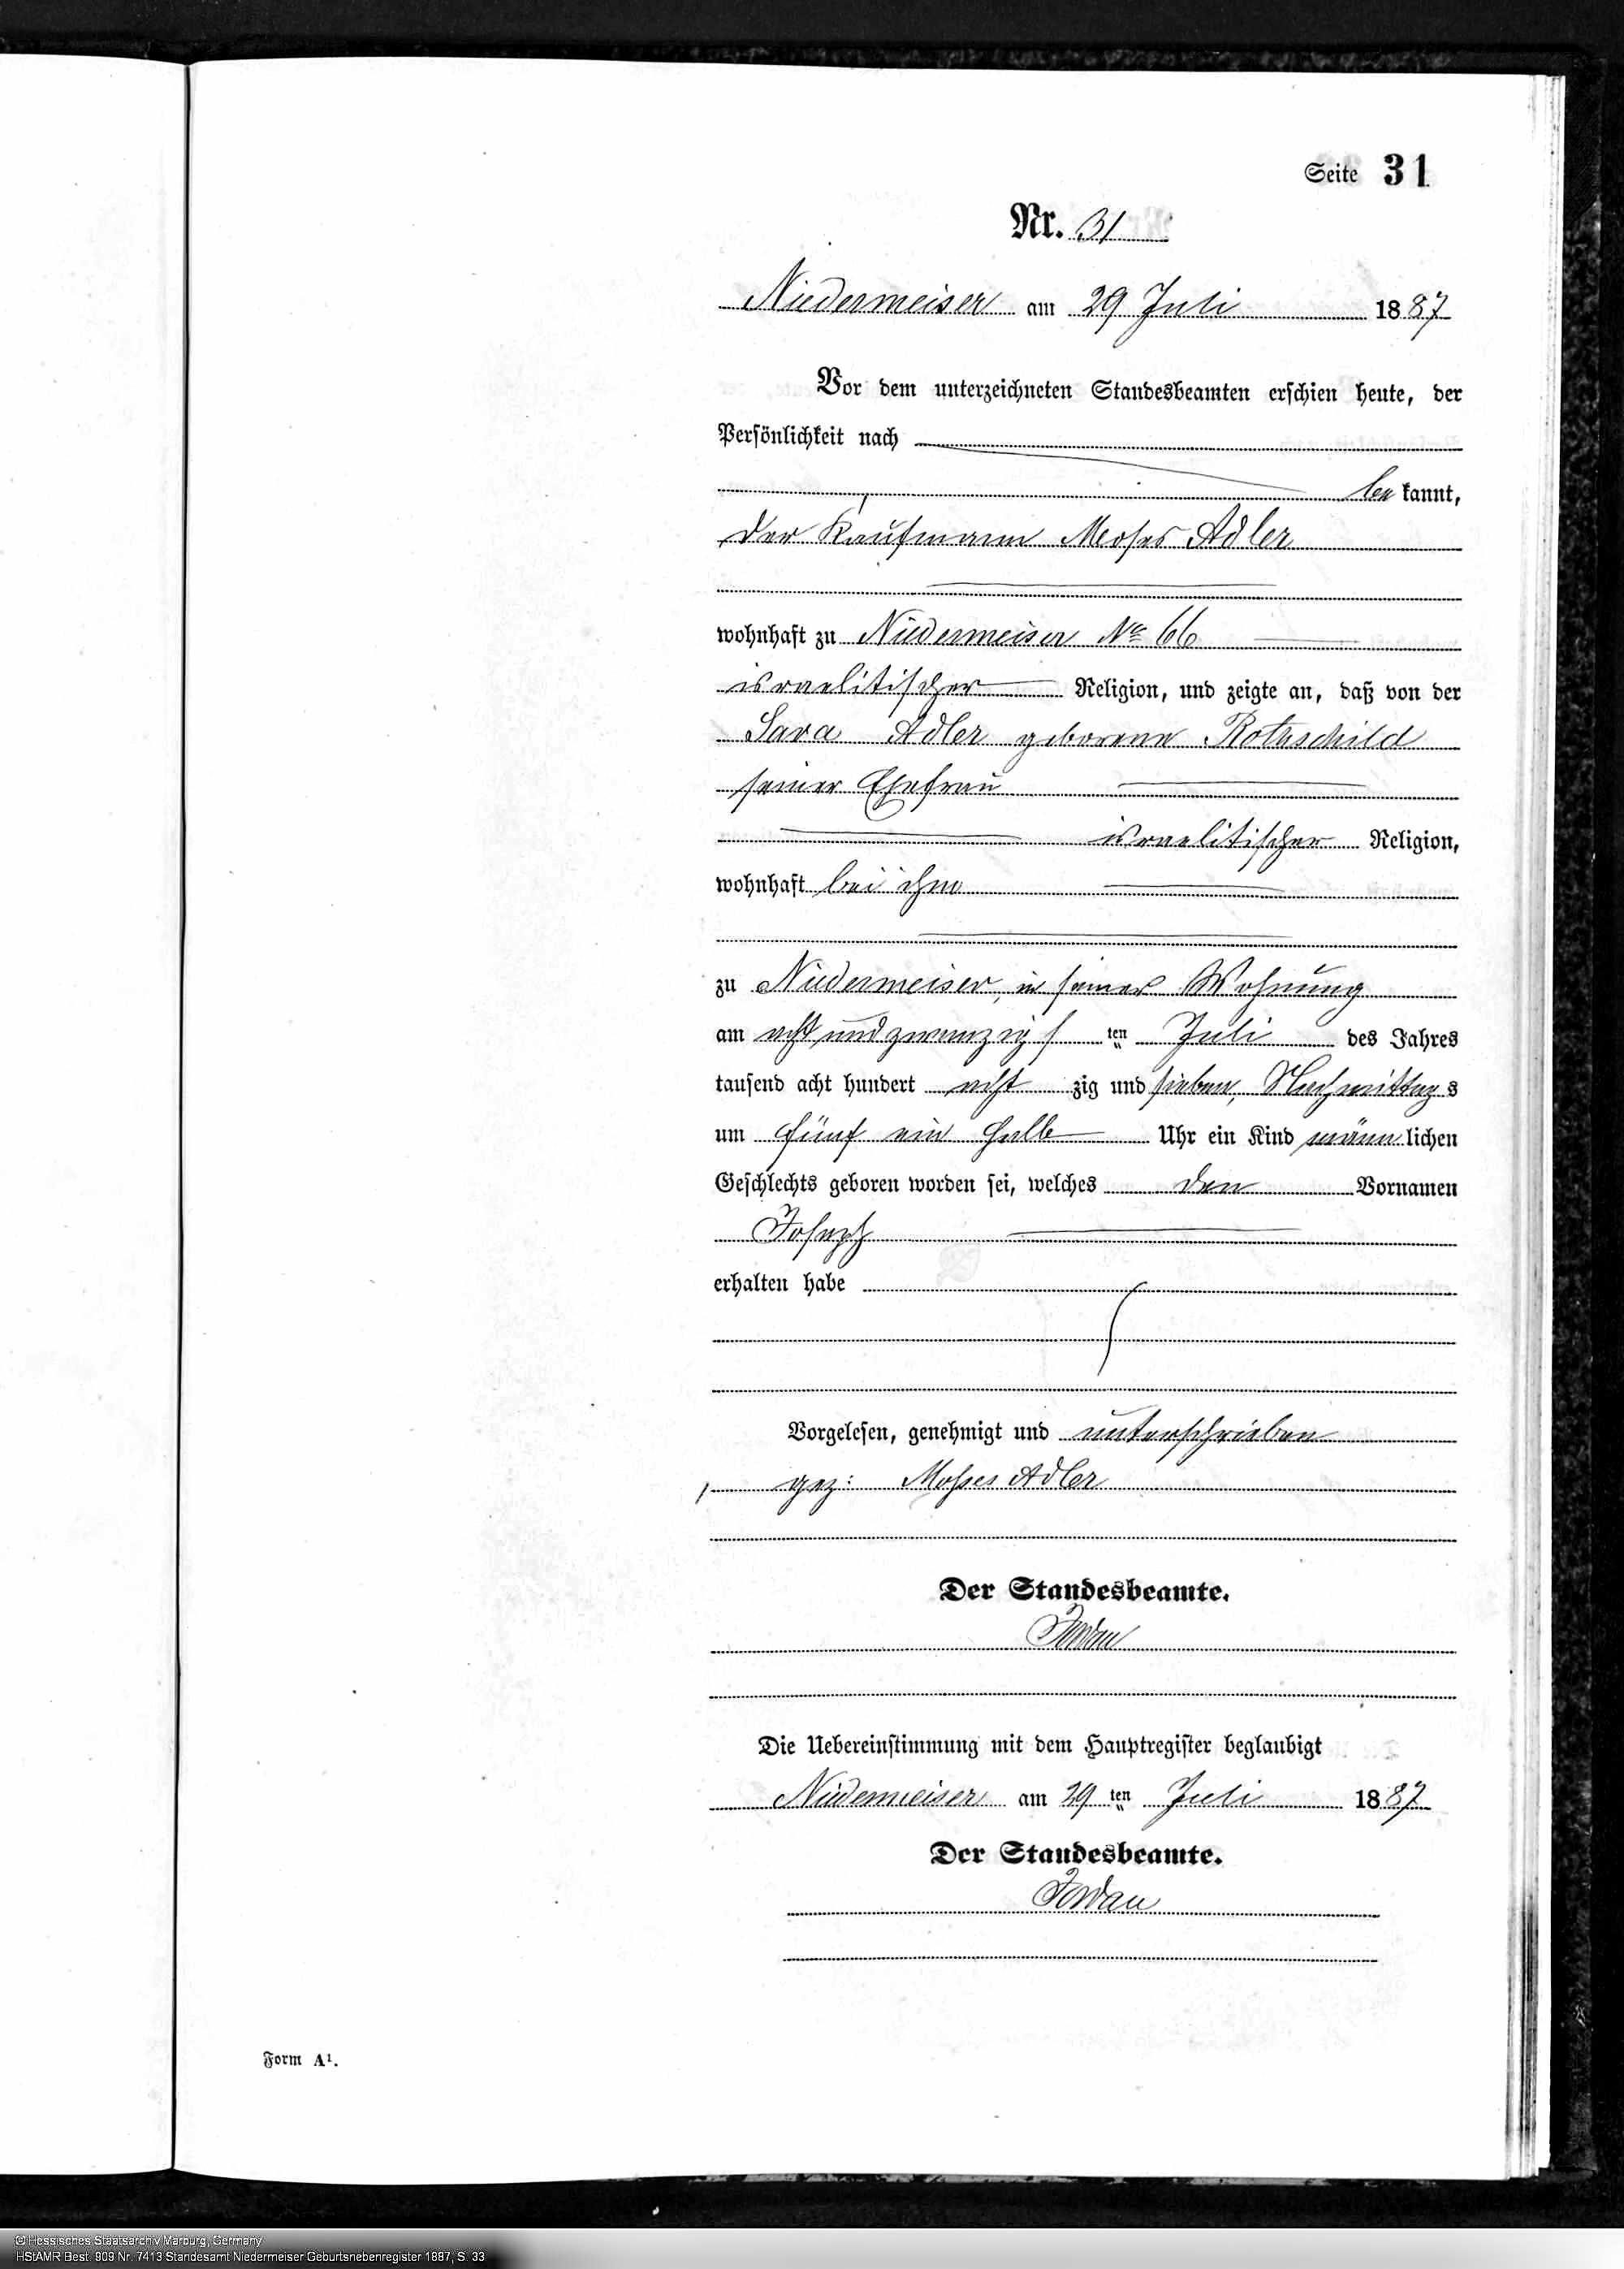 Seite 31
Nr. 31
Niedermeiser am 29 Juli 1887
Vor dem unterzeichneten Standesbeamten erschien heute, der
Persönlichkeit nach
be kannt,
der Kaufmann Moses Adler
wohnhaft zu Niedermeiser No 66
israelitischer Religion, und zeigte an, daß von der
Sara Adler geborene Rothschild
seiner Ehefrau
israelitischer Religion,
wohnhaft bei ihm
zu Niedermeiser, in seiner Wohnung
am acht und zwanzigsten Juli des Jahres
tausend acht hundert acht zig und sieben, Nachmittags
um fünf ein halb Uhr ein Kind männlichen
Geschlechts geboren worden sei, welches den Vornamen
Joseph
erhalten habe
Vorgelesen, genehmigt und unterschrieben
gez: Moses Adler
Der Standesbeamte.
Jordan
Die Uebereinstimmung mit dem Hauptregister beglaubigt
Niedermeiser am 29 ten Juli 1887
Der Standesbeamte.
Jordan
Form A¹.
© Hessisches Staatsarchiv Marburg, Germany
HStAMR Best. 909 Nr. 7413 Standesamt Niedermeiser Geburtsnebenregister 1887, S. 33